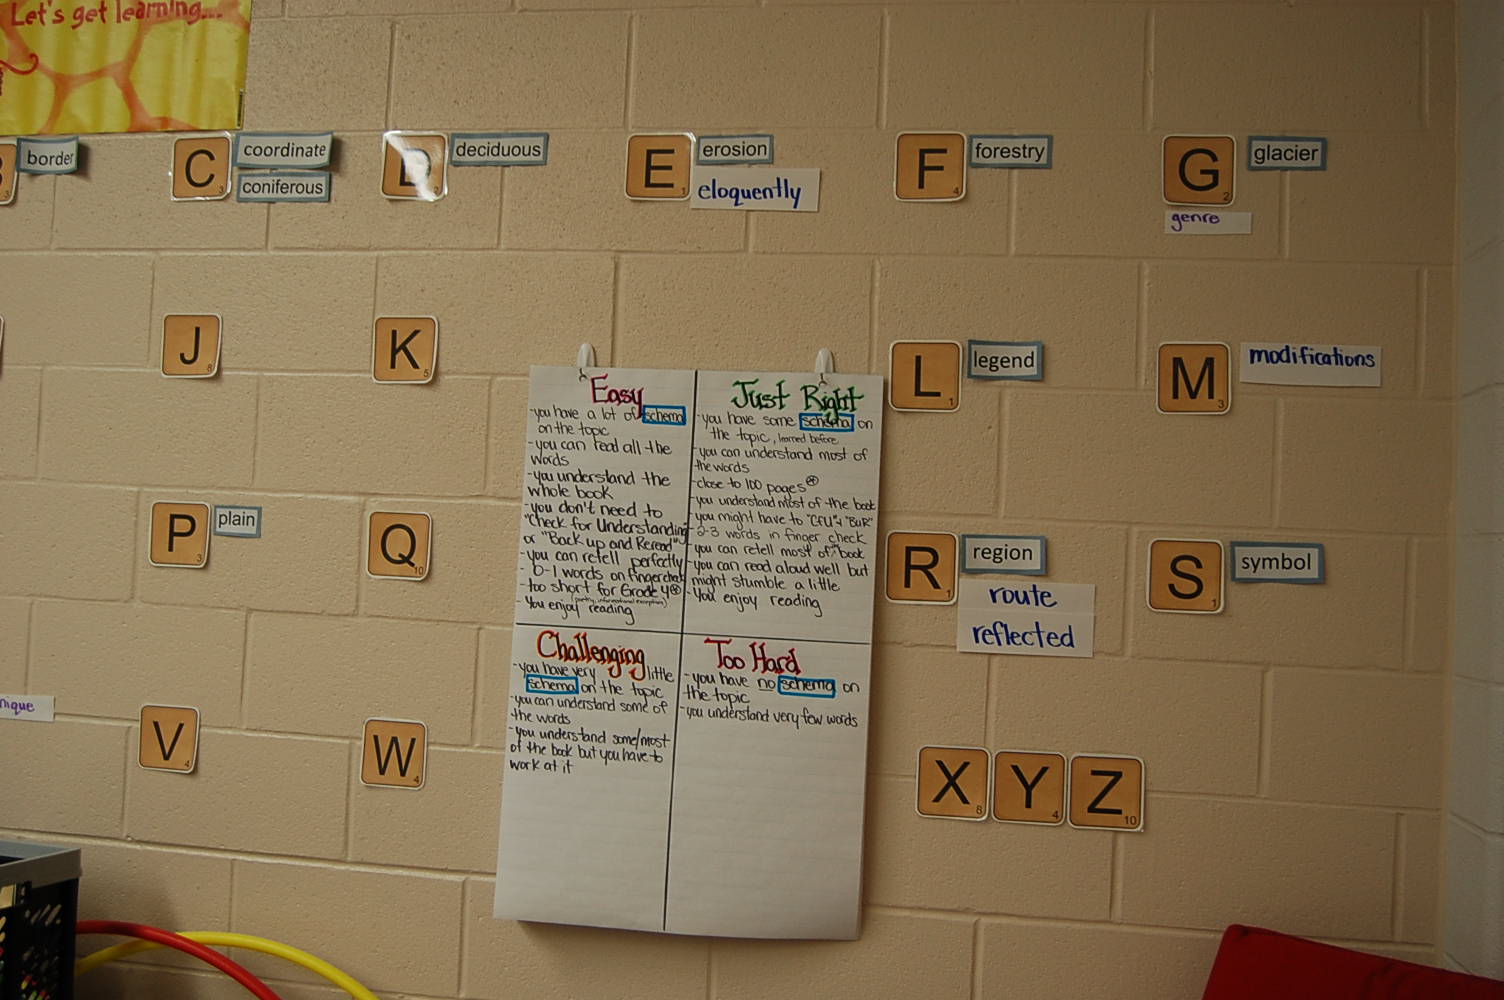 Let's get learning...
border
C 3
coordinate
coniferous
D
deciduous
E 1
erosion
eloquently
F 4
forestry
G 2
glacier
genre
J 8
K 5
L 1
legend
M 3
modifications
P 3
plain
Q 10
R 1
region
route
reflected
S 1
symbol
V 4
W 4
X 8
Y 4
Z 10
Easy
-you have a lot of schema
on the topic
-you can read all the
words
-you understand the
whole book
-you don't need to
"Check for Understanding"
or "Back up and Reread"
-you can retell perfectly
- 0-1 words on finger check
- too short for Grade 4
(poetry, informational exceptions)
- You enjoy reading
Just Right
-you have some schema on
the topic, learned before
-you can understand most of
the words
-close to 100 pages
-you understand most of the book
-you might have to "CFU" & "BUR"
-2-3 words in finger check
-you can retell most of book
-you can read aloud well but
might stumble a little
-you enjoy reading
Challenging
-you have very little
schema on the topic
-you can understand some of
the words
-you understand some/most
of the book but you have to
work at it
Too Hard
-you have no schema on
the topic
-you understand very few words